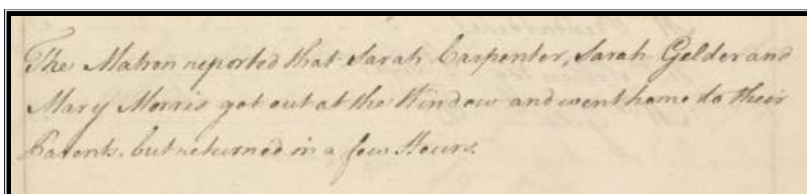 The Matron reported that Sarah Carpenter, Sarah Gelder and
Mary Morris got out at the Window and went home to their
Parents, but returned in a few Hours.